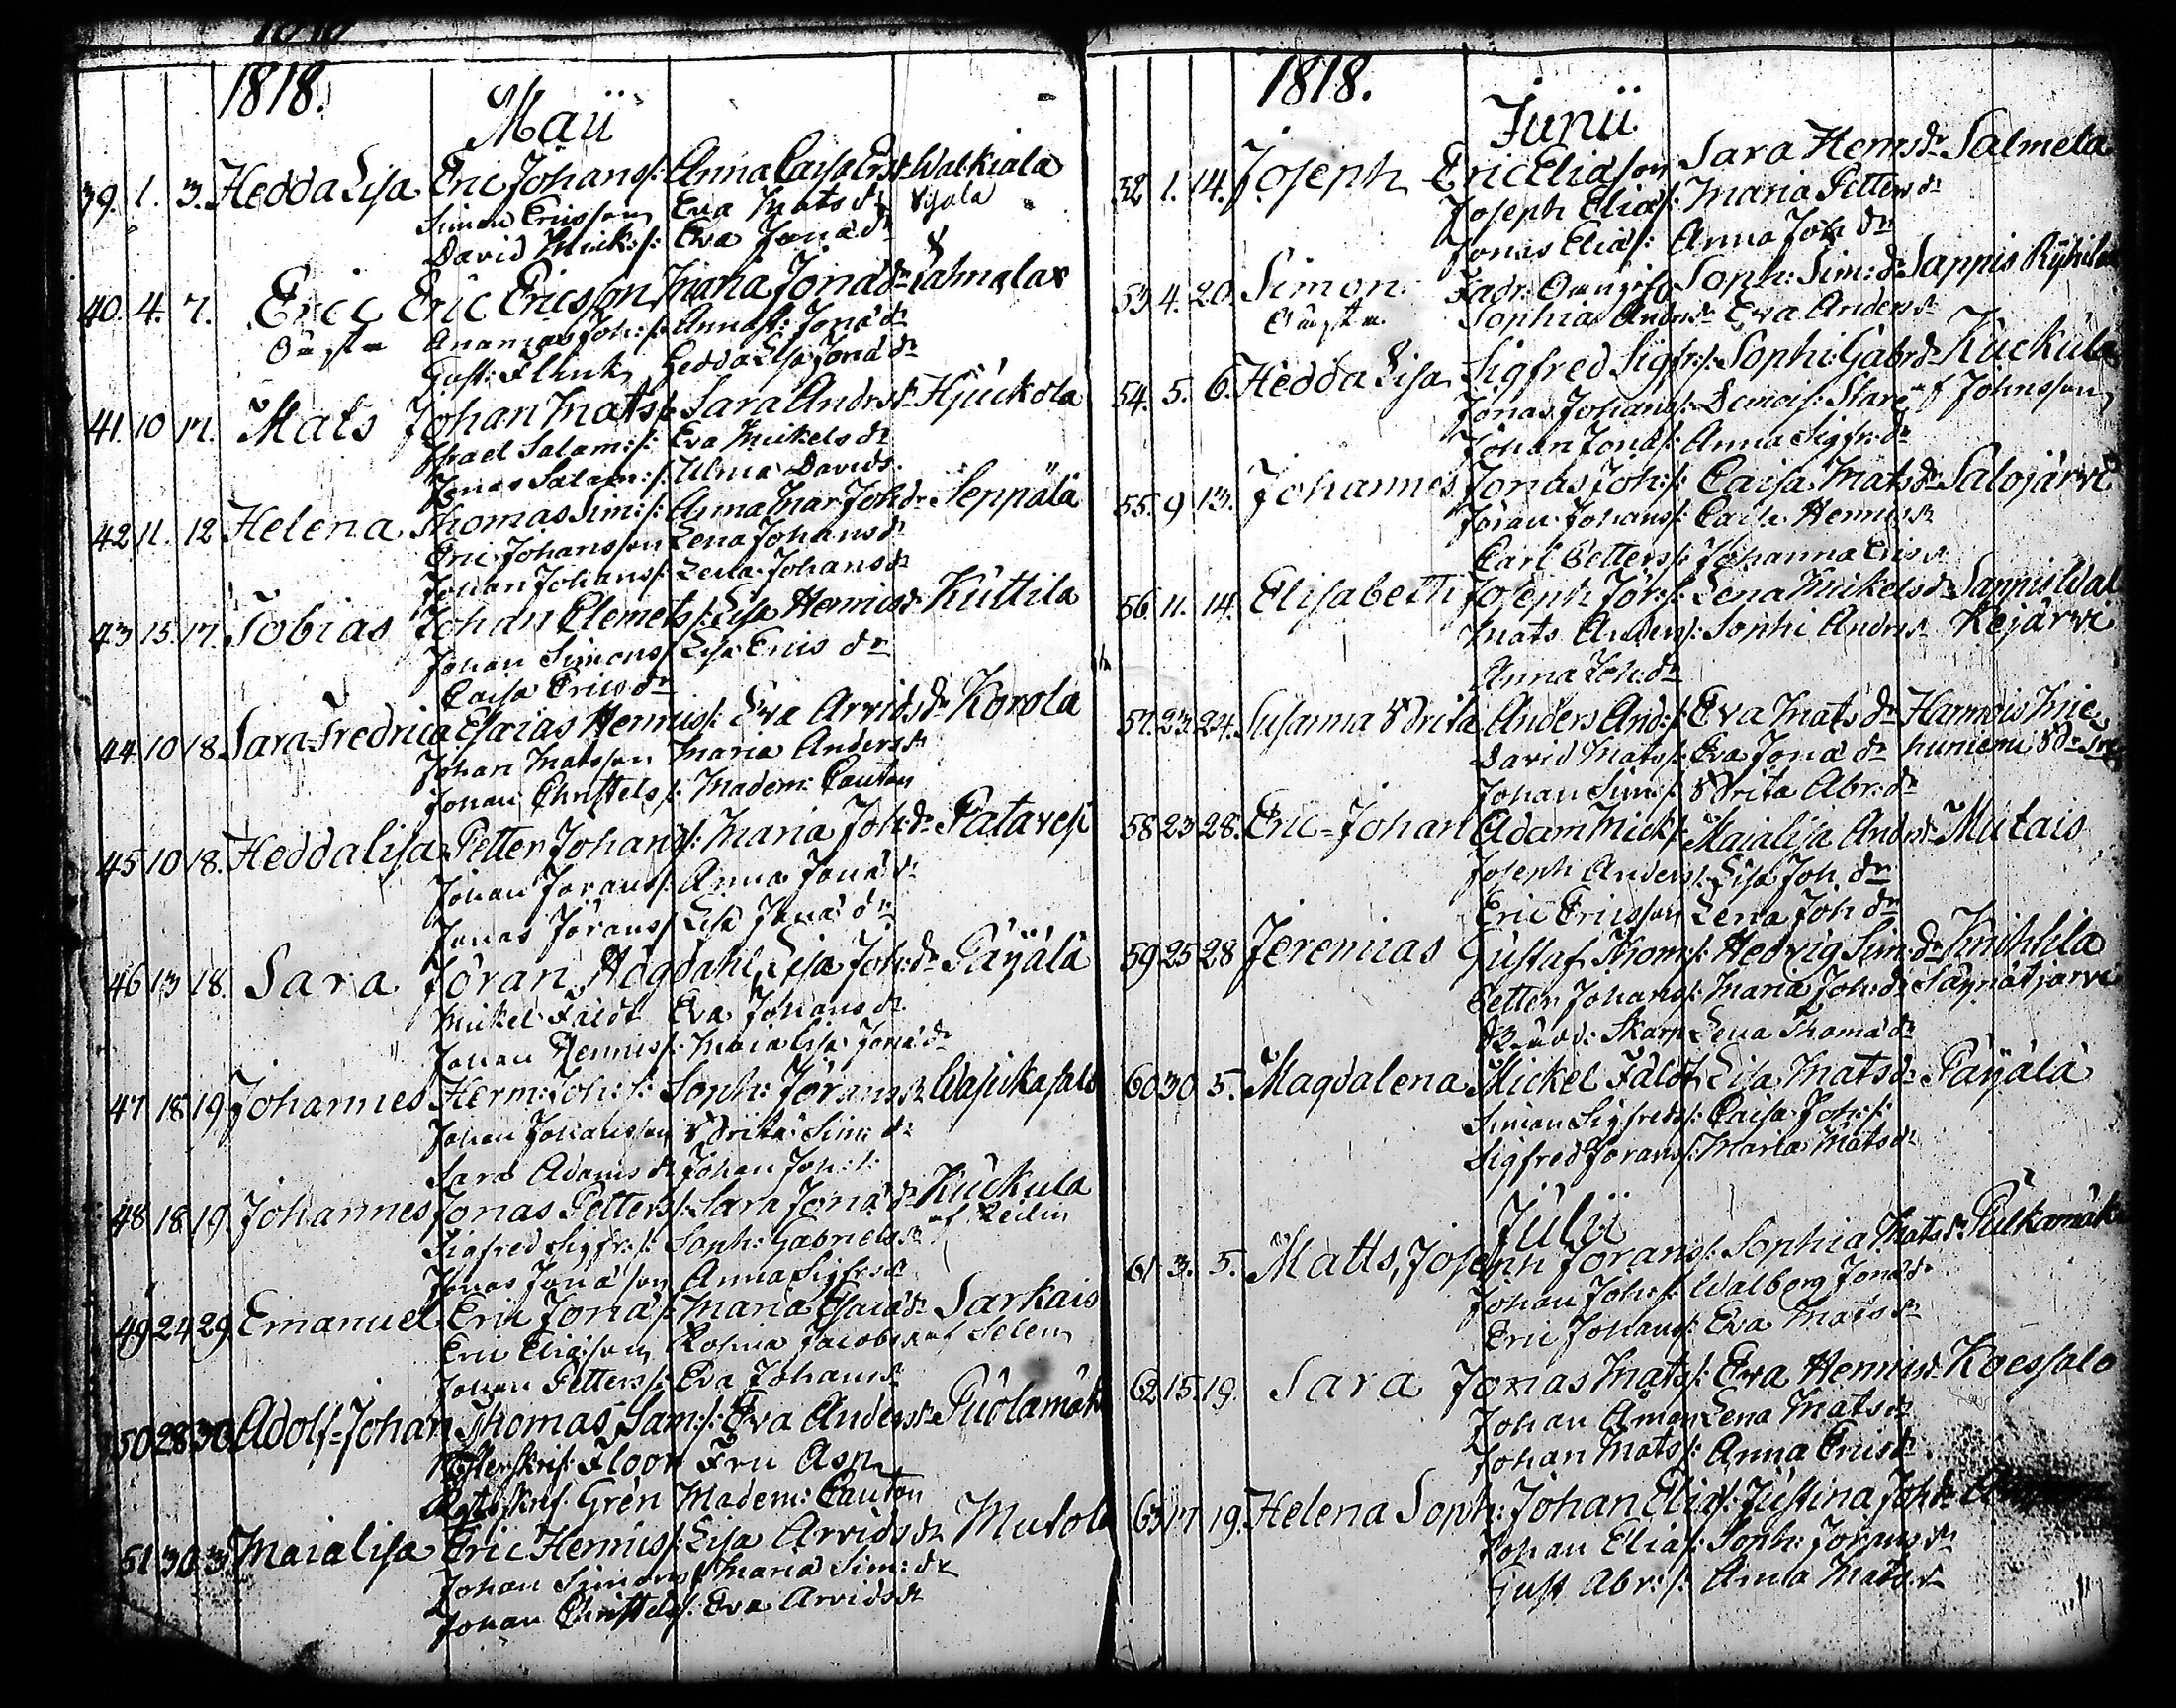 1818.
Maii
39. 1. 3. Hedda Lisa Eric Johans/: Anna Caisa Ersdr Walkiala
Simon Ericsson Eva Mats dr
David Mick:/: Eva Jona dr
40. 4. 7. Eric Eric Ericsson Maria Jona dr
Ananias Joh:/: Anna St: Jona dr
Gust: Flink Hedda Lisa Jona dr
41. 10 17. Mats Johan Mats/: Sara Andrs dr Hjuckola
Israel Salam:/: Eva Mickels dr
Jonas Salam:/: Ulrica Davids.
42 11. 12 Helena Thomas Sim:/: Anna Mar Joh dr Seppälä
Eric Johansson Lena Johans dr
Johan Johans/: Lena Johans dr
43 15. 17. Tobias Johan Clemets/: Lisa Henrics dr Kuttila
Johan Simons/: Lisa Erics dr
Caisa Erics dr
44 10 18. Sara Fredrica Esaias Henrics/: Eva Arvids dr Korola
Johan Matsson Maria Anders dr
Johan Christels/: Madem: Pauton
45 10 18. Hedda Lisa Petter Johans/: Maria Joh: dr
Johan Jörans/: Anna Jona dr
Jonas Jörans/: Lisa Jona dr
46 13 18. Sara Jöran Högdahl Lisa Joh: dr Päjälä
Mickel Fäldt Eva Johans dr
Johan Henrics/: Maia Lisa Jona dr
47 18 19 Johannes Herm: Joh:/: Soph: Jörans dr
Johan Johansson Brita Sim: dr
Sara Adams dr Johan Joh:/:
48 18 19. Johannes Jonas Petters/: Sara Jona dr Kuckula
Sigfred Sigfr:/: Soph: Gabriels dr
Jonas Jona son Anna Sigfrs dr
49 24 29. Emanuel Eric Jona/: Maria Esaiæ dr Sarkais
Eric Eliasson Jacobs dr
Johan Petters/: Eva Johans dr
50 28 30. Adolf-Johan Thomas Sam:/: Eva Anders dr Puolamäk
Floor Fru Asp
Grén Madem: Pauton
51 30 3. Maia Lisa Eric Henrics/: Lisa Arvids dr Mutola
Johan Simons/: Maria Sim: dr
Johan Christels/: Eva Arvids dr
1818.
Junii
52 1. 14. Joseph Eric Eliasson Sara Henrs dr Salmela
Joseph Elias/: Maria Petters dr
Jonas Elias/: Anna Joh dr
53 4. 20. Simon Soph: Sim: dr
Sophia Andrs dr Eva Anders dr
54. 5. 6. Hedda Lisa Sigfred Sigfr:/: Sophi: Gabr dr Kuckula
Jonas Johans/:
Johan Jona/: Anna Sigfr: dr
55. 9 13. Johannes Jonas Joh:/: Caisa Mats dr Salojärvi
Jöran Johans/: Caisa Henrics dr
Carl Petters/: Johanna Erics dr
56 11. 14. Elisabeth Joseph Jör:/: Lena Mickels dr
Mats Anders/: Sophi Andrs dr Kejärvi
Anna Joh: dr
57. 23. 24. Susanna Brita Anders And:/: Eva Mats dr
David Mats/: Eva Jona dr
Johan Sim:/: Brita Abr: dr
58 23 28. Eric-Johan Adam Mick/: Maialisa Andrs dr Mutais
Joseph Anders/: Lisa Joh dr
Eric Ericsson Lena Joh dr
59 25 28 Jeremias Gustaf Thom:/: Hedvig Sim: dr
Petter Johans/: Maria Joh: dr
Skarp Lena Thoma dr
60 30 5. Magdalena Mickel Fäldt Lisa Mats dr Päjälä
Simon Sigfreds/: Caisa Joh:/:
Sigfred Jörans/: Maria Mats dr
Julii
61 3. 5. Matts, Joseph Jörans/: Sophia Mats dr
Johan Joh:/: Walborg Jona dr
Eric Johans/: Eva Mats dr
62 15 19. Sara Jonas Mats/: Eva Henrics dr Koessalo
Johan Åman Lena Mats dr
Johan Mats/: Anna Erics dr
63 17 19. Helena Soph: Johan Elias/: Justina Joh dr
Johan Elias/: Soph: Jörans dr
Gust Abr:/: Anna Mats dr